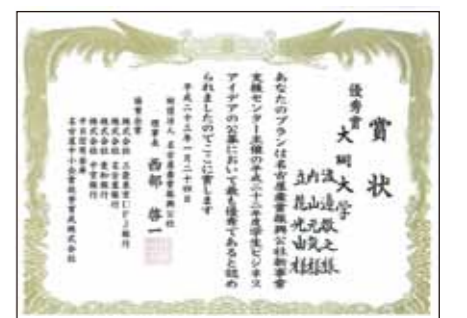 賞状
優秀賞
大同大学
渡邉敬之様
内山元気様
立花光由様
あなたのプランは名古屋産業振興公社新事業
支援センター主催の平成二十二年度学生ビジネス
アイデアの公募において最も優秀であると認め
られましたのでここに賞します
平成二十三年一月二十四日
財団法人 名古屋産業振興公社
理事長 西部啓一
協賛企業
株式会社 三菱東京UFJ銀行
株式会社 名古屋銀行
株式会社 愛知銀行
株式会社 中京銀行
中日信用金庫
名古屋中小企業投資育成株式会社